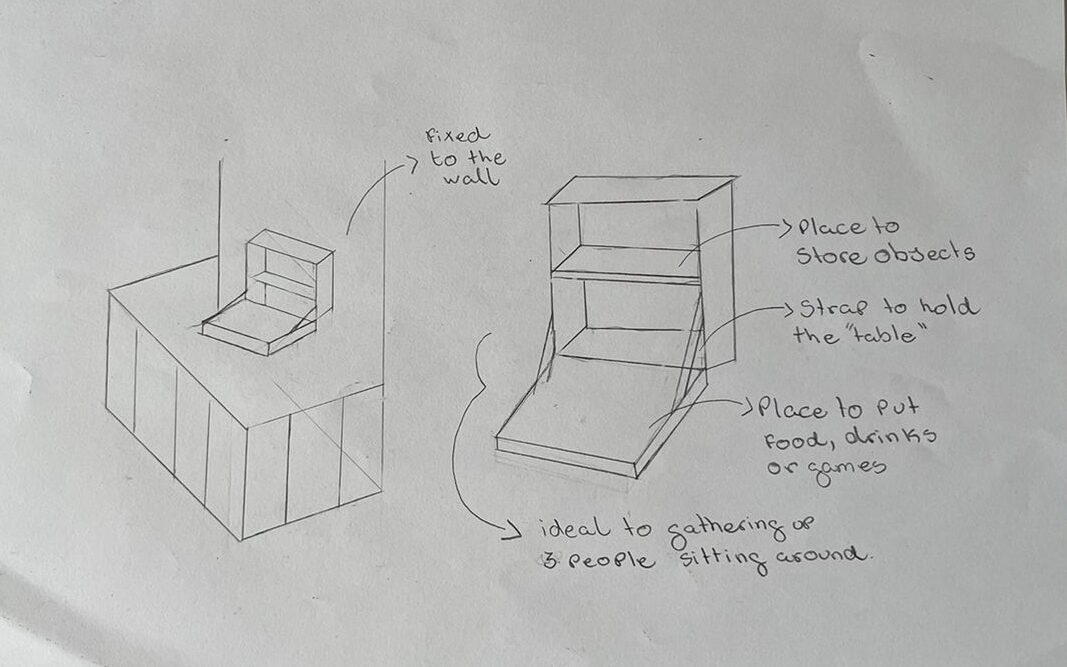 Fixed
to the
wall
Place to
Store objects
Strap to hold
the "table"
Place to put
Food, drinks
or games
ideal to gathering up
3 people sitting around.